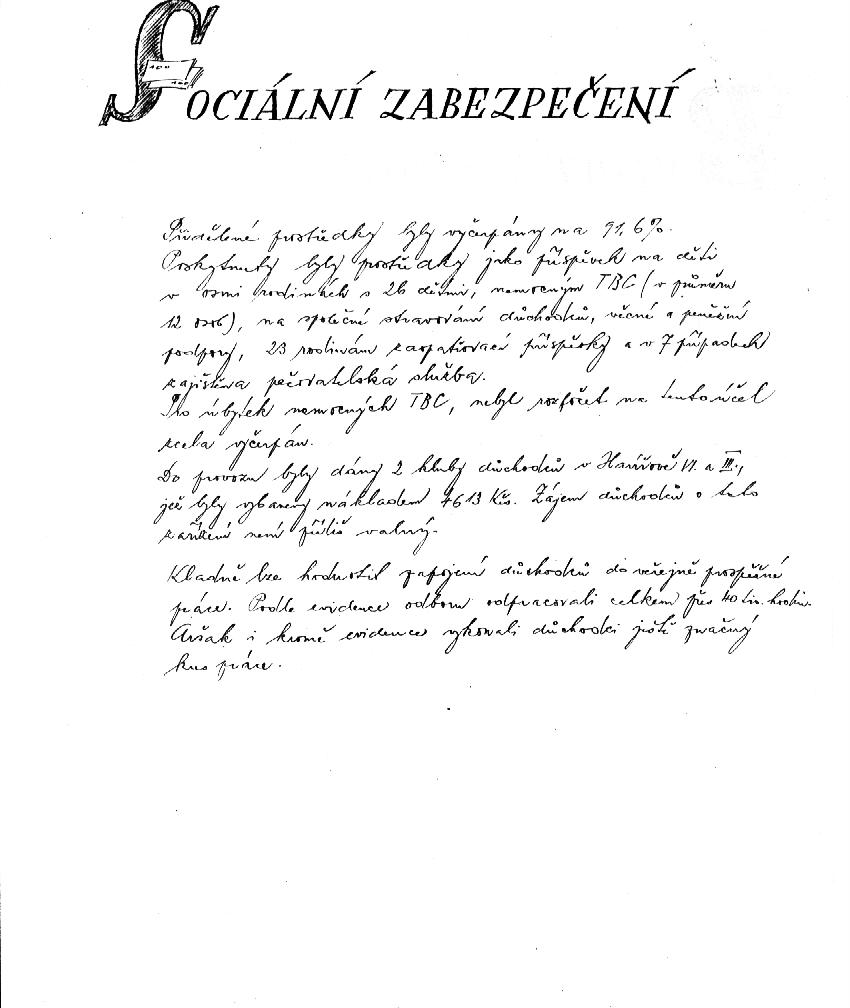 SOCIÁLNÍ ZABEZPEČENÍ
Přidělené prostředky byly vyčerpány na 91,6%.
Poskytnuty byly prostředky jako příspěvek na děti
v osmi rodinách s 26 dětmi, nemocným TBC (v průměru
12 osob), na společné stravování důchodců, věcné a peněžní
podpory, 23 rodinám zaopatřovací příspěvky a v 7 případech
zajištěna pečovatelská služba.
Pro úbytek nemocných TBC, nebyl rozpočet na tento účel
zcela vyčerpán.
Do provozu byly dány 2 kluby důchodců v Havířově VI. a III.,
jež byly vybaveny nákladem 4613 Kčs. Zájem důchodců o tato
zařízení není příliš valný.
Kladně lze hodnotit zapojení důchodců do veřejně prospěšné
práce. Podle evidence odboru odpracovali celkem přes 40 tis. hodin.
Avšak i kromě evidence vykonali důchodci ještě značný
kus práce.